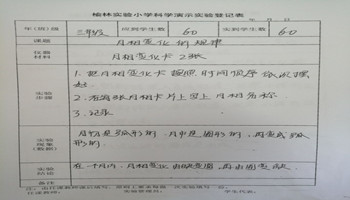 榆林实验小学科学演示实验登记表
年 月 日
年(班)级 三年级 应到学生数 60 实到学生数 60
课题 月相变化的规律
仪器材料 月相变化卡2张
实验步骤 1. 把月相变化卡按照时间顺序依次摆好
2. 在每张月相卡片上写上月相名称
3. 记录
实验现象(数据) 月初是弧形的 月中是圆形的
形的
实验结论 在一个月内,月相变化由缺变圆,再由圆变缺
备注